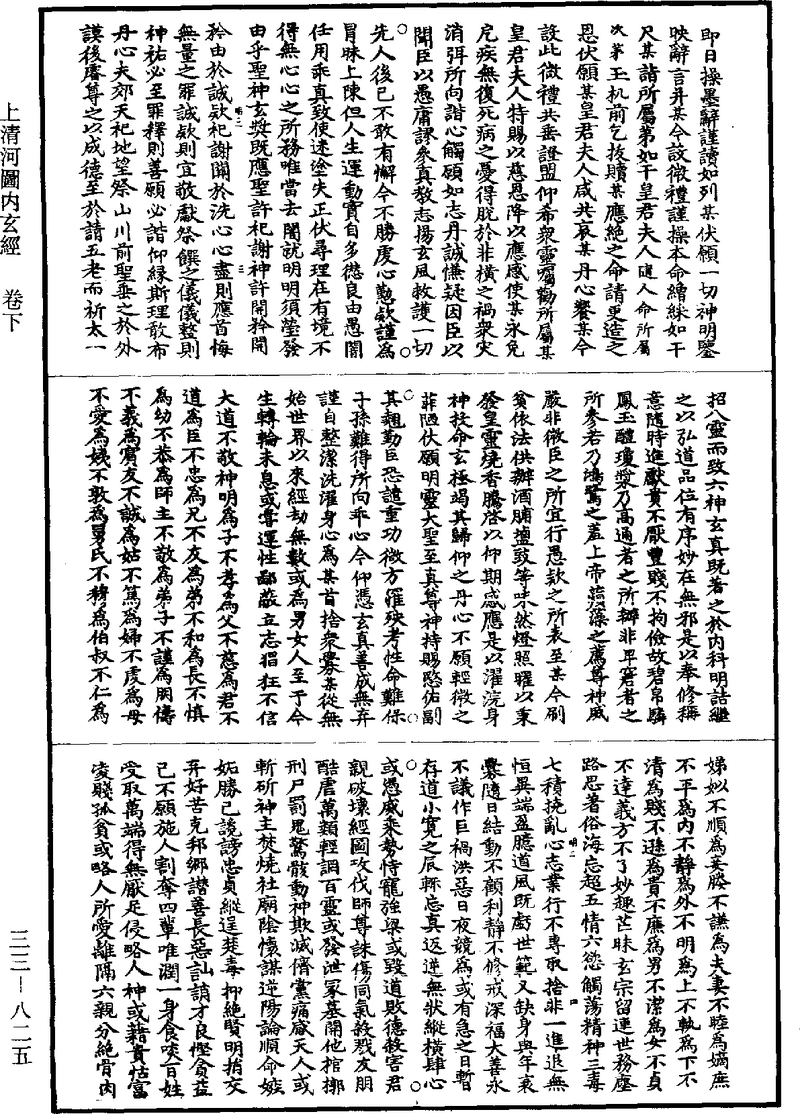 上清河圖內玄經　卷下
三三—八二五
即日操墨辭謹讀如列某伏願一切神明鑒
映辭言并某今設微禮謹操本命繒綵如干
尺某詣所屬第如干皇君夫人隨人命所屬
次第玉机前乞拔贖某應絕之命請更造之
恩伏願某皇君夫人咸共哀某丹心饗某今
設此微禮共垂證盟仰希衆靈囑勒所屬某
皇君夫人特賜以慈恩降以應感使某永免
厄疾無復死病之憂得脫於非橫之禍衆灾
消弭所向諧心觸願如志丹誠慊疑因臣以
聞臣以愚庸謬參真教志揚玄風救護一切
先人後已不敢有懈今不勝虔心懃欵謹爲
冒昧上陳但人生運動實自多愆良由愚闇
任用乖真致使迷塗失正伏尋理在有境不
得無心心之所務唯當去闇就明明須瑩發
由乎聖神玄奬既應聖許祀謝神許開衿開
衿由於誠欵祀謝關於洗心心盡則應首悔
無量之罪誠欵則宜敬獻祭饌之儀儀整則
神祐必至罪釋則善願必諧仰緣斯理敢布
丹心夫郊天祀地望祭山川前聖垂之於外
謨後麿尊之以成德至於請五老而祈太一
招八靈而致六神玄真既著之於内科明詰繼
之以弘道品位有序妙在無邪是以奉修稱
意隨時進獻貴不厭豐賤不拘儉故碧帛驎
鳳玉醴瓊漿乃高通者之所辯非卑窘者之
所參若乃鴻鷺之羞上帝蘊藻之薦尊神威
嚴非微臣之所宜行愚欵之所表至某今刷
貧依法供辦酒脯擅豉等味然燈照曜以秉
發皇靈燒香騰啓以仰期感應是以濯浣身
神投命玄極竭其歸仰之丹心不願輕微之
菲陋伏願明靈大聖至真尊神特賜愍佑副
其翹勤臣恐譴重功微方罹殃考性命難保
子孫難得所向乖心今仰憑玄真善成無弃
謹自整潔洗濯身心爲某首捨衆釁某從無
始世界以來經劫無數或爲男女人至于今
生轉輪未息或奪運性鄙蔽立志猖狂不信
大道不敬神明爲子不孝爲父不慈爲君不
道爲臣不忠爲兄不友爲弟不和爲長不慎
爲幼不恭爲師主不敬爲弟子不謹爲朋儔
不義爲賓友不誠爲姑不篤爲婦不虔爲母
不愛爲姨不敦爲舅氏不穆爲伯叔不仁爲
娣姒不順爲妾媵不謙爲夫妻不睦爲嫡庶
不平爲内不靜爲外不明爲上不執爲下不
清爲賤不遜爲貴不廉爲男不潔爲女不貞
不達義方不了妙趣芒昧玄宗留連世務塵
路思著俗海忘超五情六慾觸蕩精神三毒
七積撓亂心志業行不專取捨非一進退無
恒異端盈臆道風既虧世範又缺身與年衰
釁隨日結動不顧利靜不修戒深福大善永
不議作巨禍洪惡日夜競爲或有急之日暫
存道小寛之辰輙忘真返逆無狀縱橫肆心
或愚威乘勢恃寵強梁或毀道敗德殺害君
親破壞經圖攻伐師尊誅傷同氣殺戮友朋
酷虐萬類輕誷百靈或發泄冢墓開他棺槨
刑尸罰鬼驚骸動神欺滅儕黨痛蹙天人或
斬斫神主焚燒社廟陰懷謀逆陽論順命嫉
妬勝己謗謗忠貞縱逞蔆毒抑絕賢明拍交
弃好苦克邦鄉譖善長惡訕請才良慳貪益
己不願施人割奪四輩唯潤一身食啖百姓
受取萬端得無厭足侵略人神或藉貴怙富
凌賤孤貧或略人所愛離隔六親分絕骨肉